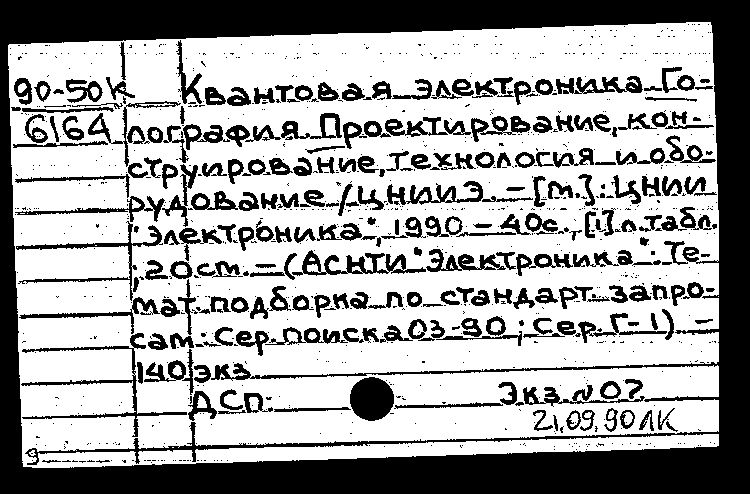 90-50К Квантовая электроника. Го-
6164 лография. Проектирование, кон-
струирование, технология и обо-
рудование / ЦНИИЭ. – [М.]: ЦНИИ
"Электроника", 1990 – 40с., [1] л. табл.
; 20 см. – (АСНТИ "Электроника": Те-
мат. подборка по стандарт. запро-
сам: Сер. поиска 03-90; Сер. Г-1) –
140 экз.
ДСП. Экз. № 07
21.09.90 ЛК
9